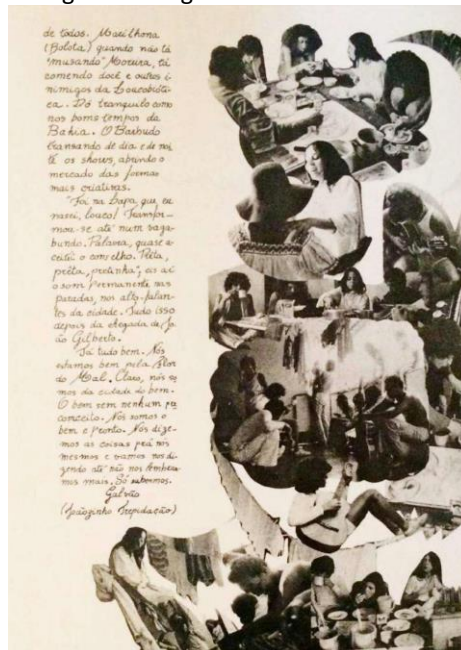 de todos. Marilhona
(Bolota) quando não tá
"musando" Moreira, tá
comendo doce e outros i-
nimigos da Loucobióti-
ca. Dó tranquilo como
nos bons tempos da
Bahia. O Barbudo
transando de dia e de noi
tê os shows, abrindo o
mercado das formas
mais criativas.
"Foi na Lapa, que eu
nasci, louco! Transfor-
mou-se até num vaga-
bundo. Palavra, quase a-
ceitei o conselho. Preta,
preta, pretinha", eis aí
o som permanente nas
paradas, nos alto-falan-
tes da cidade. Tudo isso
depois da chegada de Jo-
ão Gilberto.
Tá tudo bem. Nós
estamos bem pela Flor
do Mal. Claro, nós so
mos da cidade do bem.
O bem sem nenhum pre
conceito. Nós somos o
bem e pronto. Nós dize-
mos as coisas prá nós
mesmos e vamos nos di-
zendo até não nos
mos mais. Só
Galvão
(Joãozinho Trepidação)